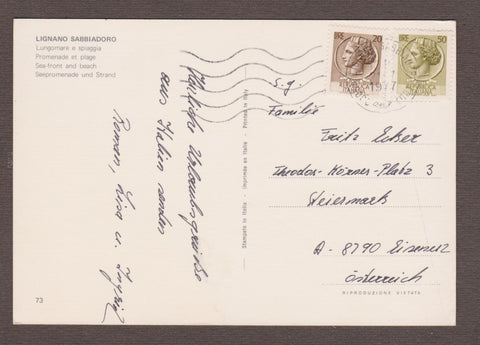 LIGNANO SABBIADORO
Lungomare e spiaggia
Promenade et plage
Sea-front and beach
Seepromenade und Strand
Herzliche Urlaubsgrüße
aus Italien senden
Roman, Lisa u.
Stampato in Italia - Imprimée en Italie - Printed in Italy
S.g.
Familie
Fritz Ecker
Theodor-Körner-Platz 3
Steiermark
A-8790 Eisenerz
Österreich
RIPRODUZIONE VIETATA
73
20
50